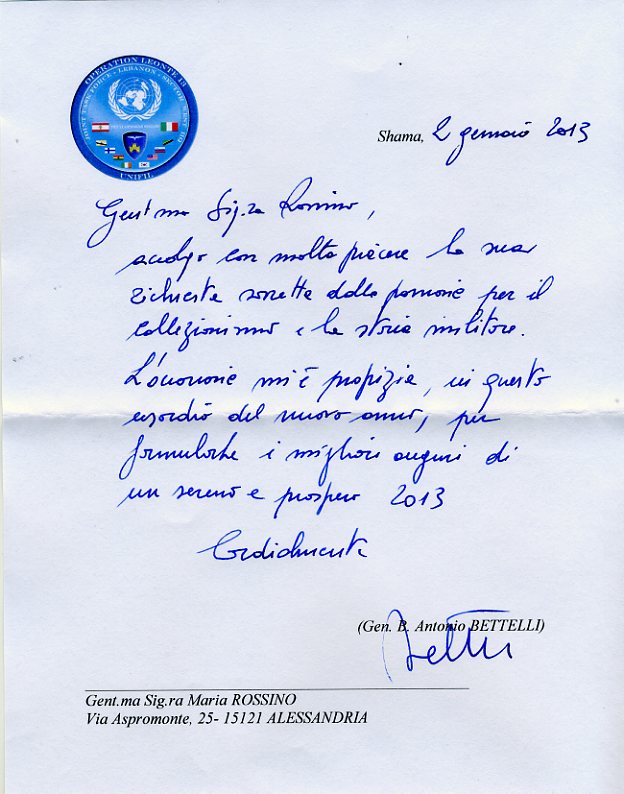 OPERATION LEONTE 13
JOINT TASK FORCE - LEBANON - SECTOR WEST HQ
UNIFIL
Shama, 2 gennaio 2013
Gent.ma Sig.ra Rossino,
accolgo con molto piacere la sua
richiesta sorretta dalla passione per il
collezionismo e la storia militare.
L'occasione mi è propizia, in questo
esordio del nuovo anno, per
formularLe i migliori auguri di
un sereno e prospero 2013
Cordialmente
(Gen. B. Antonio BETTELLI)
Bettelli
Gent.ma Sig.ra Maria ROSSINO
Via Aspromonte, 25- 15121 ALESSANDRIA